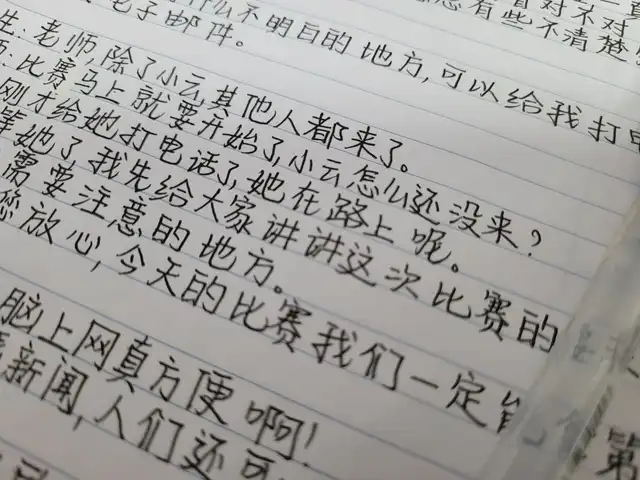 有些不清楚
什么不明白的地方,可以给我打电
电子邮件。
生:老师,除了小云,其他人都来了。
:比赛马上就要开始了,小云怎么还没来?
刚才给她打电话了,她在路上呢。
等她了,我先给大家讲讲这次比赛的
需要注意的地方。
您放心,今天的比赛我们一定能
脑上网真方便啊!
新闻,人们还可
第